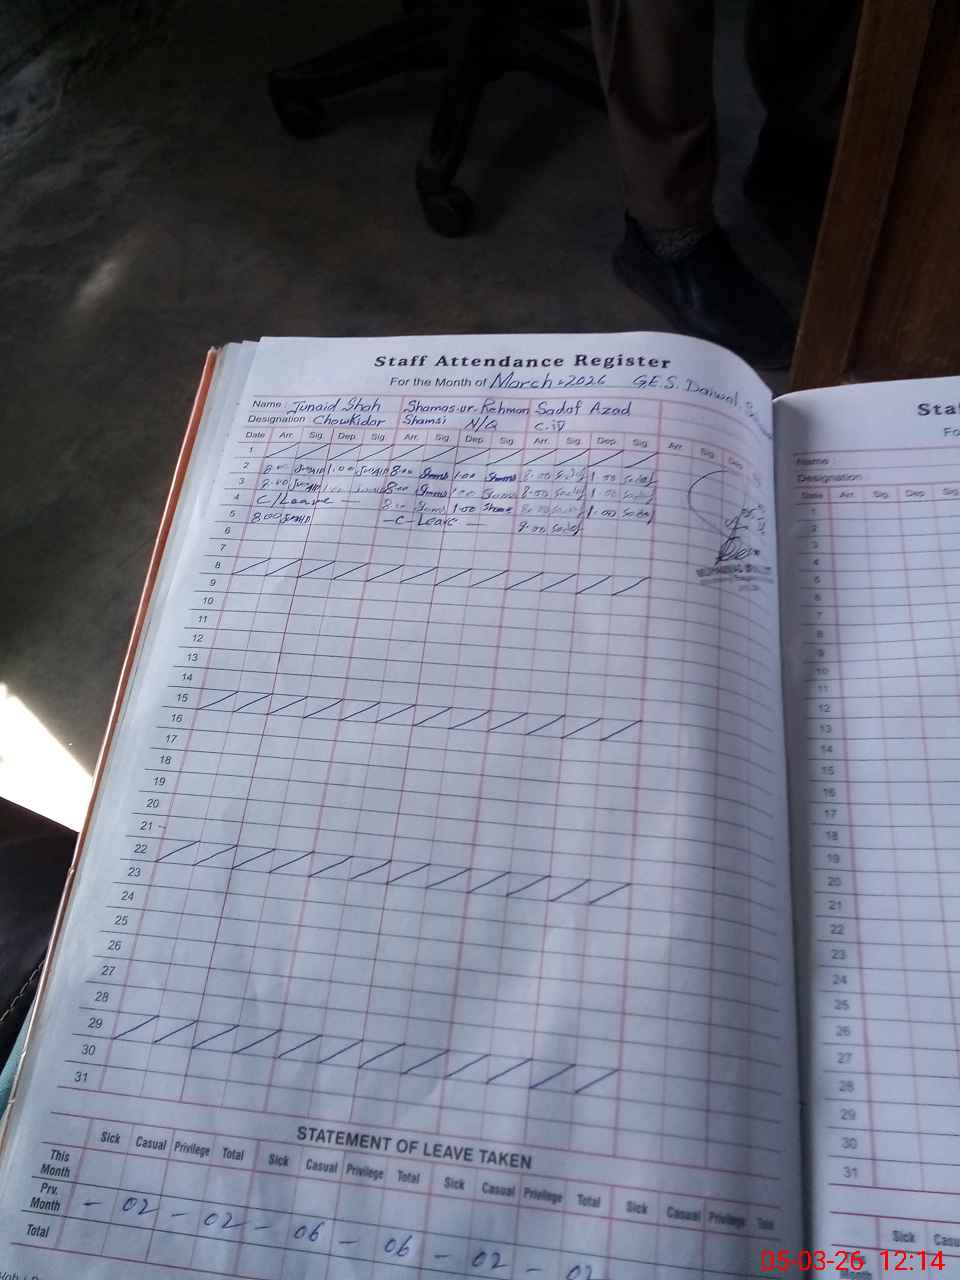 Staff Attendance Register
For the Month of March-2026 G.E.S. Daiwal
Name Junaid Shah Shamas-ur-Rehman Sadaf Azad
Designation Chowkidar Shamsi N/Q C.iv
Date Arr. Sig. Dep. Sig. Arr. Sig. Dep. Sig. Arr. Sig. Dep. Sig. Arr. Sig. Dep.
1
2 8.00 Junaid 1.00 Junaid 8.00 Shams 1.00 Shams 8.00 Sadaf 1.00 Sadaf
3 8.00 Junaid 1.00 Junaid 8.00 Shams 1.00 Shams 8.00 Sadaf 1.00 Sadaf
4 C/Leave - 8.00 Shams 1.00 Shams 8.00 Sadaf 1.00 Sadaf
5 8.00 Junaid -C-Leave- 8.00 Sadaf
6
7
8
9
10
11
12
13
14
15
16
17
18
19
20
21
22
23
24
25
26
27
28
29
30
31
STATEMENT OF LEAVE TAKEN
Sick Casual Privilege Total Sick Casual Privilege Total Sick Casual Privilege Total Sick Casual Privilege Total
This Month
Prv. Month - 02 - 02 - 06 - 06 - 02 - 02
Total
Name
Designation
Date Arr. Sig. Dep. Sig.
1
2
3
4
5
6
7
8
9
10
11
12
13
14
15
16
17
18
19
20
21
22
23
24
25
26
27
28
29
30
31
Sick
05-03-26 12:14